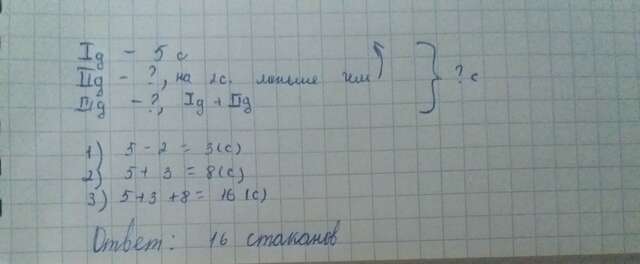 Iд - 5 с
IIд - ?, на 2с. меньше чем
IIIд - ?, Iд + IIд
? с
1) 5 - 2 = 3(с)
2) 5 + 3 = 8(с)
3) 5+3+8= 16(с)
Ответ: 16 стаканов